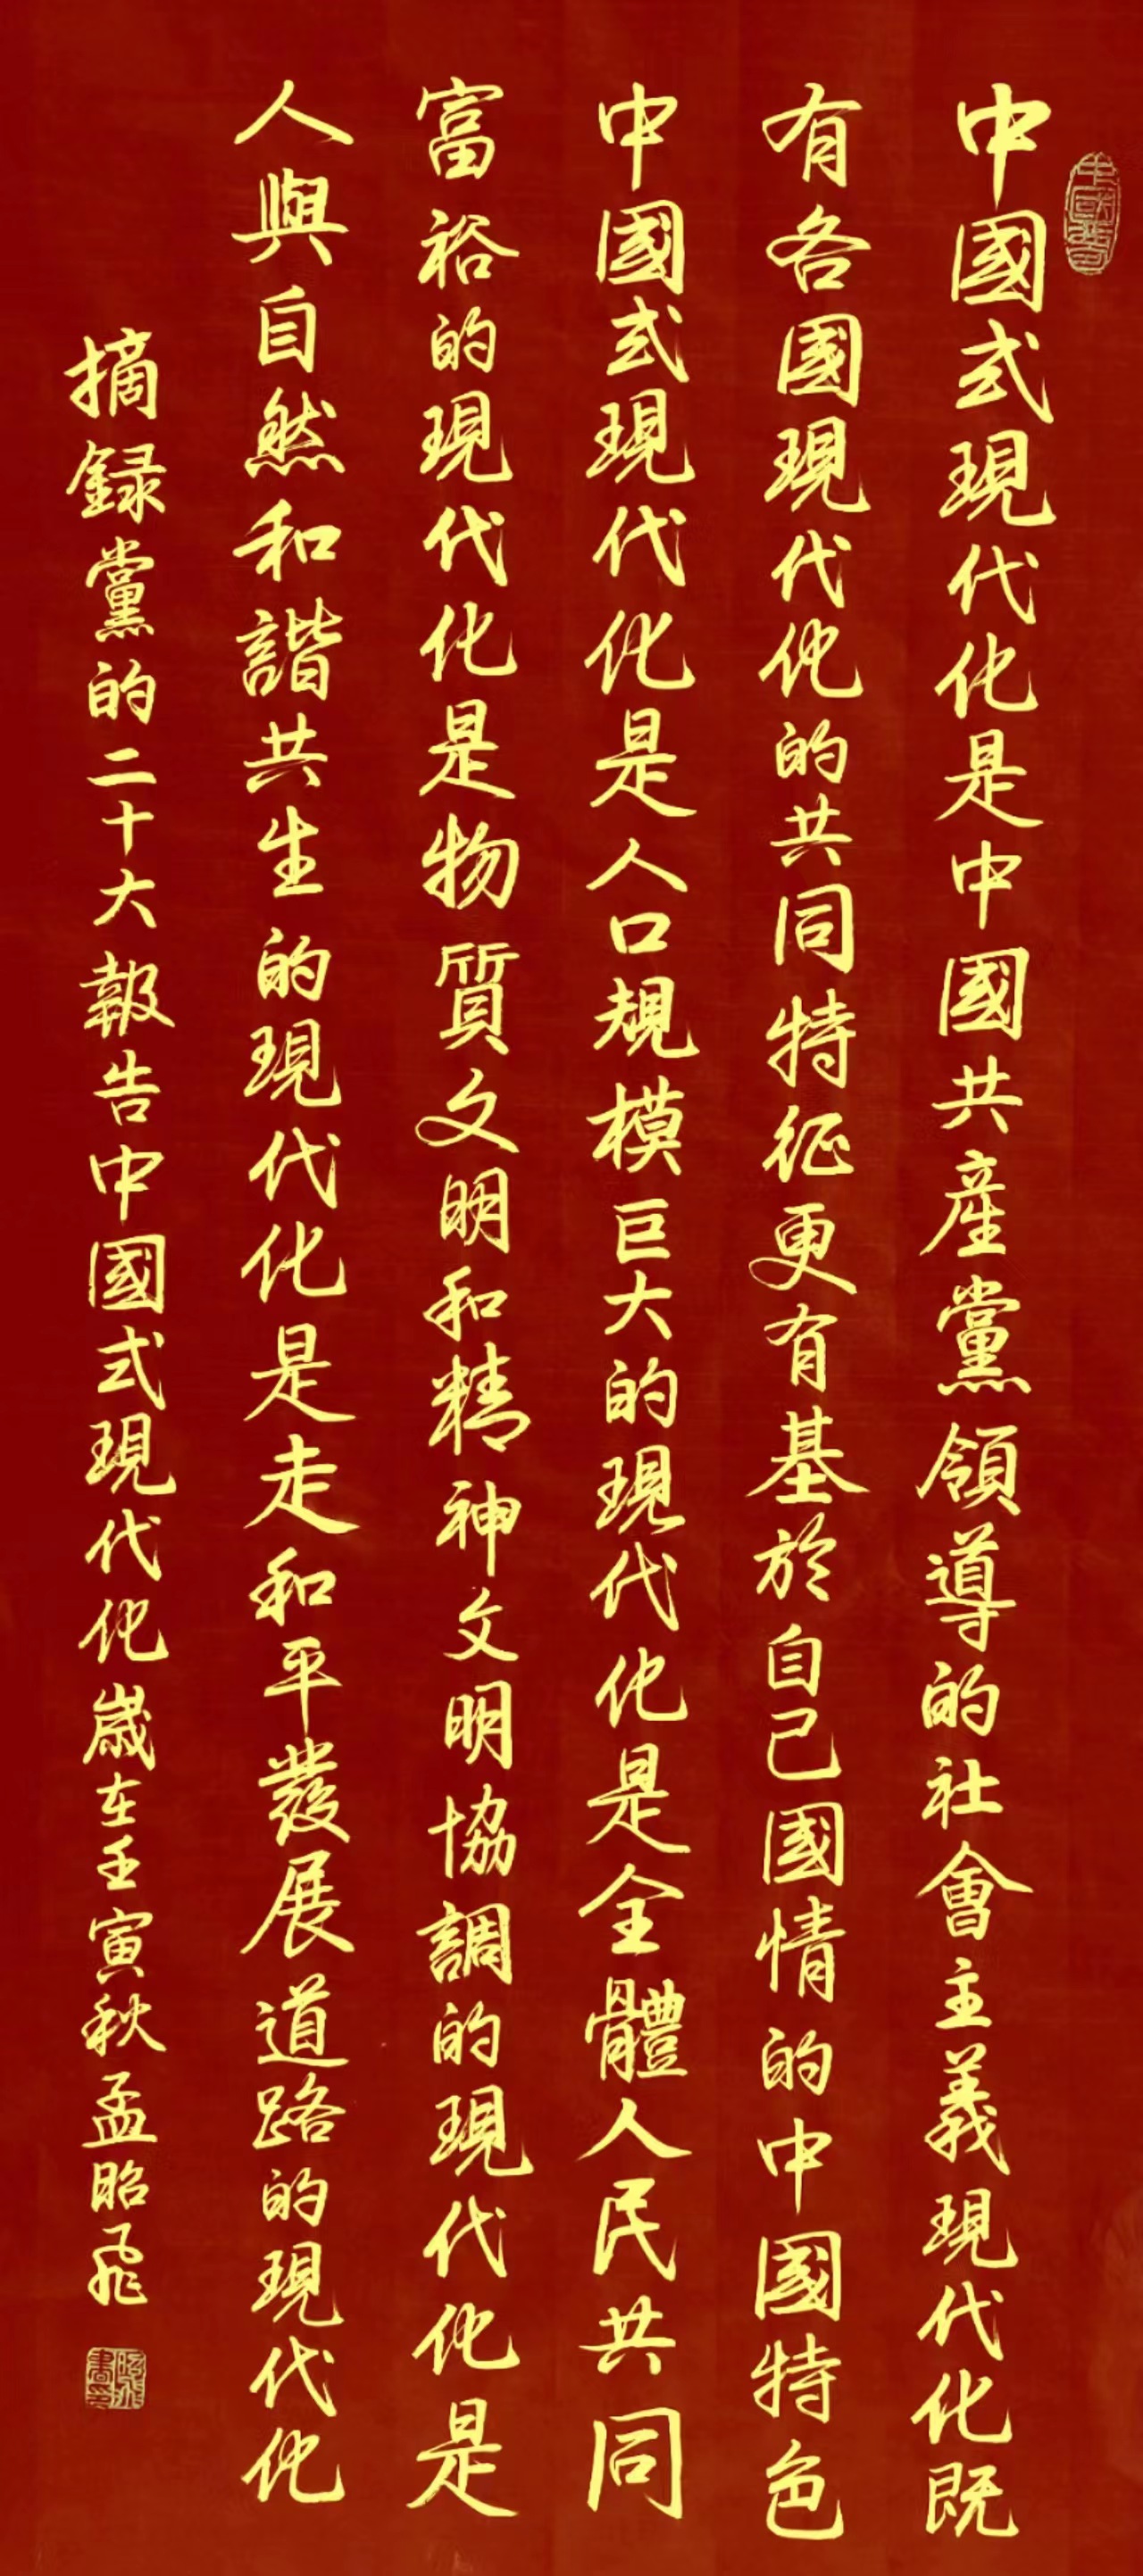 中國式現代化是中國共産黨領導的社會主義現代化既
有各國現代化的共同特征更有基於自己國情的中國特色
中國式現代化是人口規模巨大的現代化是全體人民共同
富裕的現代化是物質文明和精神文明協調的現代化是
人與自然和諧共生的現代化是走和平發展道路的現代化
摘録黨的二十大報告中國式現代化歲在壬寅秋孟昭飛
中國夢
昭飛書印